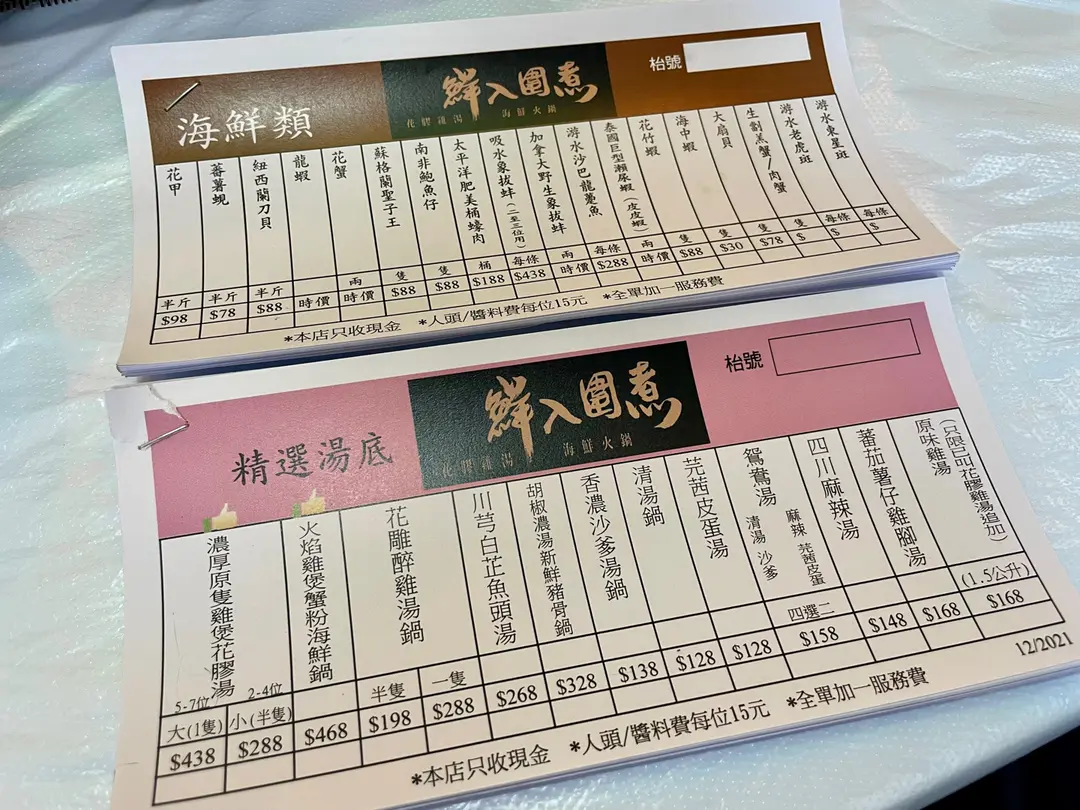 海鮮類
鮮入圍煮
花膠雞湯 海鮮火鍋
枱號
花甲
蕃薯蜆
紐西蘭刀貝
龍蝦
花蟹
蘇格蘭聖子王
南非鮑魚仔
太平洋肥美桶蠔肉
吸水象拔蚌(二至三位用)
加拿大野生象拔蚌
游水沙巴龍躉魚
泰國巨型瀨尿蝦(皮皮蝦)
花竹蝦
海中蝦
大扇貝
生劏羔蟹/肉蟹
游水老虎斑
游水東星斑
半斤 半斤 半斤 兩 隻 隻 桶 每條 兩 每條 兩 隻 隻 隻 每條 每條
$98 $78 $88 時價 時價 $88 $88 $188 $438 時價 $288 時價 $88 $30 $78 $ $ $
*本店只收現金 *人頭/醬料費每位15元 *全單加一服務費
精選湯底
鮮入圍煮
花膠雞湯 海鮮火鍋
枱號
濃厚原隻雞煲花膠湯
火焰雞煲蟹粉海鮮鍋
花雕醉雞湯鍋
川芎白芷魚頭湯
胡椒濃湯新鮮豬骨鍋
香濃沙爹湯鍋
清湯鍋
芫茜皮蛋湯
鴛鴦湯
清湯 沙爹
麻辣 芫茜皮蛋
四川麻辣湯
蕃茄薯仔雞腳湯
原味雞湯
(只限已叫花膠雞湯追加)
5-7位 2-4位
大(1隻) 小(半隻) 半隻 一隻 四選二 (1.5公升)
$438 $288 $468 $198 $288 $268 $328 $138 $128 $128 $158 $148 $168 $168
12/2021
*本店只收現金 *人頭/醬料費每位15元 *全單加一服務費